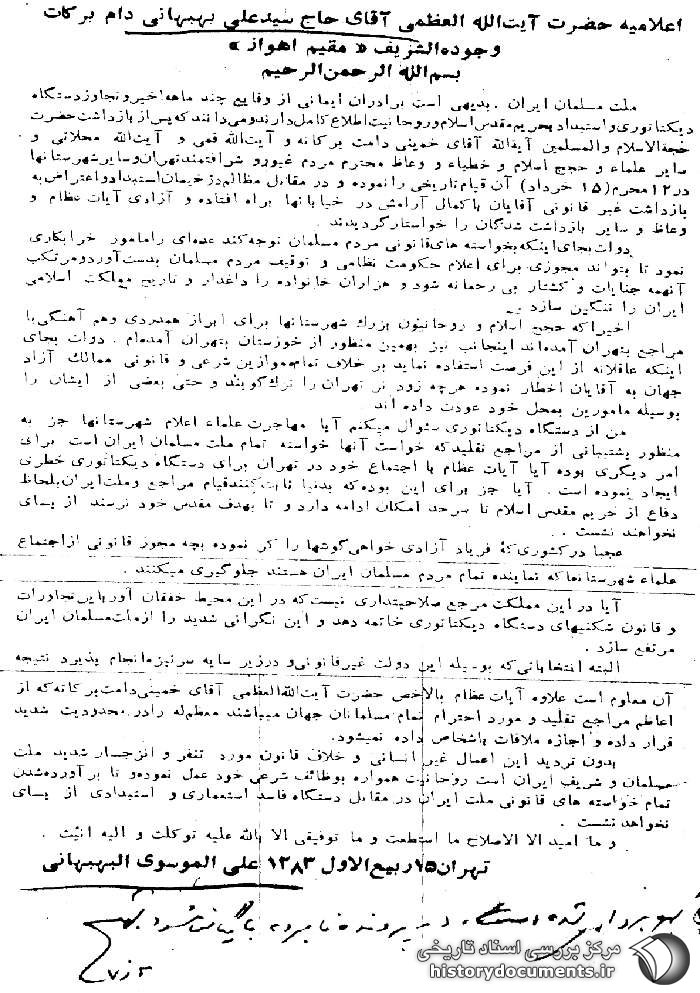 اعلامیه حضرت آیت‌الله العظمی آقای حاج سیدعلی بهبهانی دام برکات
وجوده‌الشریف « مقیم اهواز »
بسم‌الله الرحمن‌الرحیم
ملت مسلمان ایران . بدیهی است برادران ایمانی از وقایع چند ماهه‌اخیر و تجاوز دستگاه
دیکتاتوری و استبداد بحریم مقدس اسلام و روحانیت اطلاع کامل دارند و می‌دانند که پس از بازداشت حضرت
حجةالاسلام والمسلمین آیةالله آقای خمینی دامت برکاته و آیت‌الله قمی و آیت‌الله محلاتی و
سایر علماء و حجج اسلام و خطباء و وعاظ محترم مردم غیور و شرافتمند تهران و سایر شهرستانها
در ۱۲ محرم (۱۵ خرداد) آن قیام تاریخی را نموده و در مقابل مظالم دژخیمان استبداد و اعتراض به
بازداشت غیر قانونی آقایان باکمال آرامش در خیابانها براه افتاده و آزادی آیات عظام و
وعاظ و سایر بازداشت شدگان را خواستار گردیدند .
دولت بجای اینکه بخواسته های قانونی مردم مسلمان توجه کند عده‌ای را مامور خرابکاری
نمود تا بتواند مجوزی برای اعلام حکومت نظامی و توقیف مردم مسلمان بدست آورد و مرتکب
آنهمه جنایات و کشتار بی رحمانه شود و هزاران خانواده را داغدار و تاریخ مملکت اسلامی
ایران را ننگین سازد .
اخیرا که حجج اسلام و روحانیون بزرك شهرستانها برای ابراز همدردی وهم آهنگی با
مراجع بتهران آمده‌اند اینجانب نیز بهمین منظور از خوزستان بتهران آمده‌ام . دولت بجای
اینکه عاقلانه از این فرصت استفاده نماید بر خلاف تمام موازین شرعی و قانونی ممالك آزاد
جهان به آقایان اخطار نموده هرچه زود تر تهران را ترك گویند و حتی بعضی از ایشان را
بوسیله مامورین بمحل خود عودت داده اند
من از دستگاه دیکتاتوری سئوال میکنم آیا مهاجرت علماء اعلام شهرستانها جز به
منظور پشتیبانی از مراجع تقلید که خواست آنها خواسته تمام ملت مسلمان ایران است برای
امر دیگری بوده آیا آیات عظام با اجتماع خود در تهران برای دستگاه دیکتاتوری خطری
ایجاد نموده است . آیا جز برای این بوده که بدنیا ثابت کنند قیام مراجع وملت ایران بلحاظ
دفاع از حریم مقدس اسلام تا سرحد امکان ادامه دارد و تا بهدف مقدس خود نرسند از پای
نخواهند نشست .
عجبا در کشوری که فریاد آزادی خواهی گوشها را کر نموده بچه مجوز قانونی از اجتماع
علماء شهرستانها که نماینده تمام مردم مسلمان ایران هستند جلوگیری میکنند .
آیا در این مملکت مرجع صلاحیتداری نیست که در این محیط خفقان آور باین تجاوزات
و قانون شکنیهای دستگاه دیکتاتوری خاتمه دهد و این نگرانی شدید را از ملت مسلمان ایران
مرتفع سازد .
البته انتخاباتی که بوسیله این دولت غیر قانونی و در زیر سایه سرنیزه انجام پذیرد نتیجه
آن معلوم است علاوه آیات عظام بالاخص حضرت آیت‌الله‌العظمی آقای خمینی دامت برکاته که از
اعاظم مراجع تقلید و مورد احترام تمام مسلمانان جهان میباشند معظم‌له را در محدودیت شدید
قرار داده و اجازه ملاقات باشخاص داده نمیشود.
بدون تردید این اعمال غیر انسانی و خلاف قانون مورد تنفر و انزجار شدید ملت
مسلمان و شریف ایران است روحانیت همواره بوظائف شرعی خود عمل نموده و تا برآورده شدن
تمام خواسته های قانونی ملت ایران در مقابل دستگاه فاسد استعماری و استبدادی از پای
نخواهد نشست .
و ما ارید الا الاصلاح ما استطعت و ما توفیقی الا بالله علیه توکلت و الیه انیب .
تهران ۱۵ ربیع‌الاول ۱۳۸۳ علی الموسوی البهبهانی
در پرونده نامبرده بایگانی شود
مرکز بررسی اسناد تاریخی
historydocuments.ir